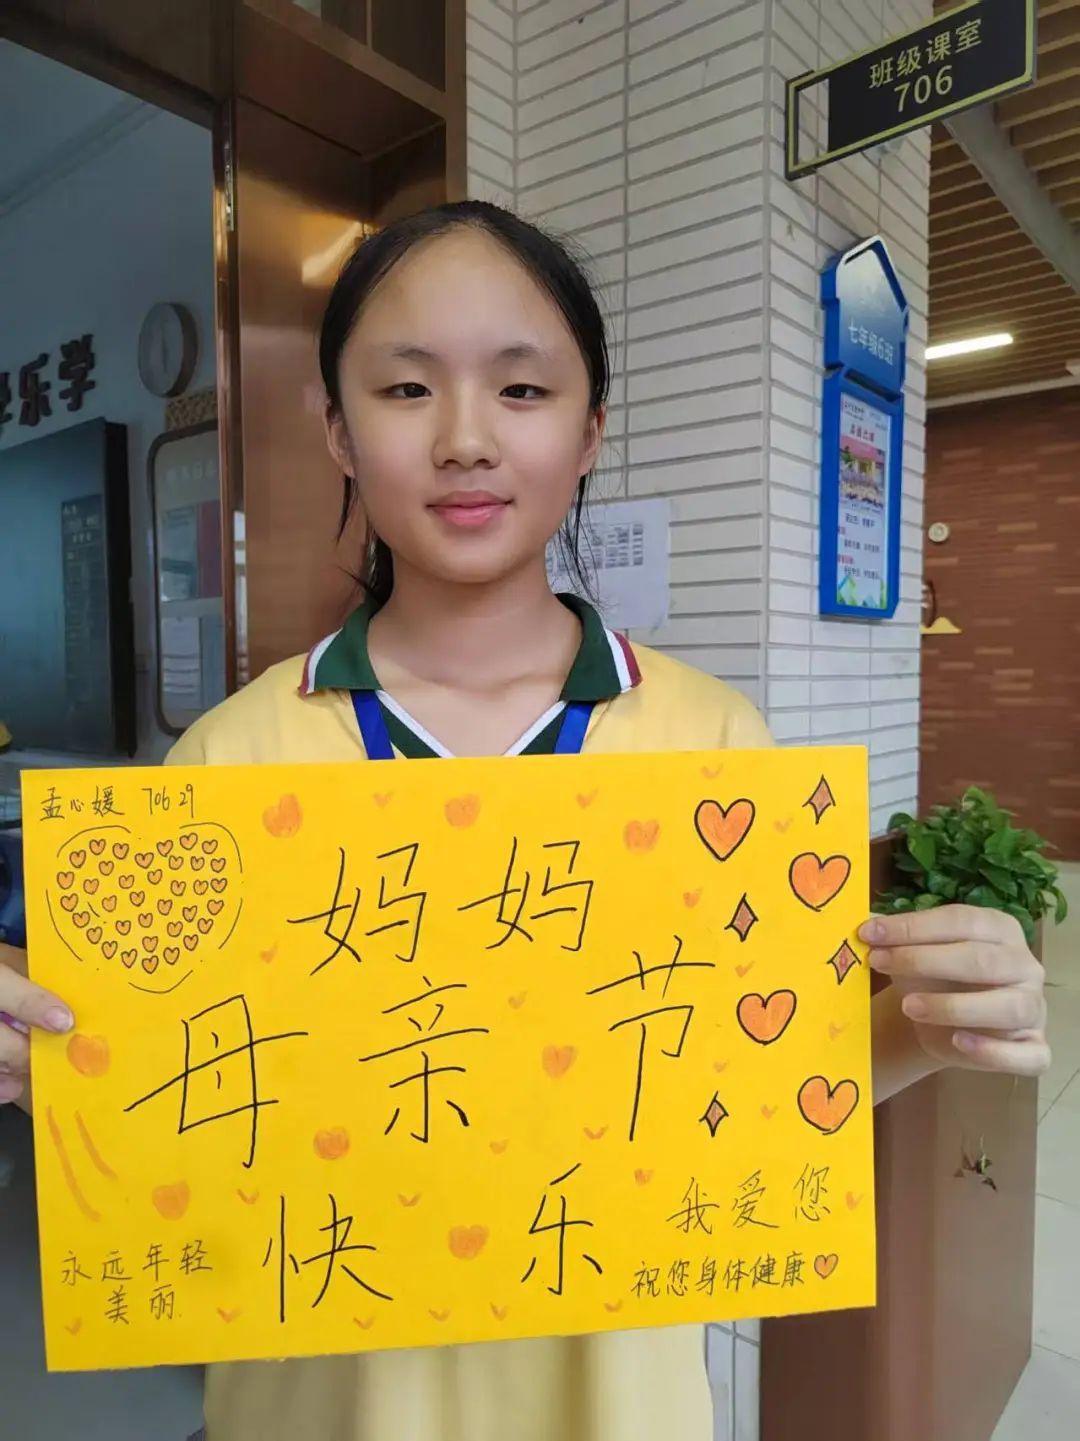 班级课室
706
七年级6班
乐学
孟心媛 706 29
妈妈
母亲节
快乐
我爱您
祝您身体健康
永远年轻
美丽